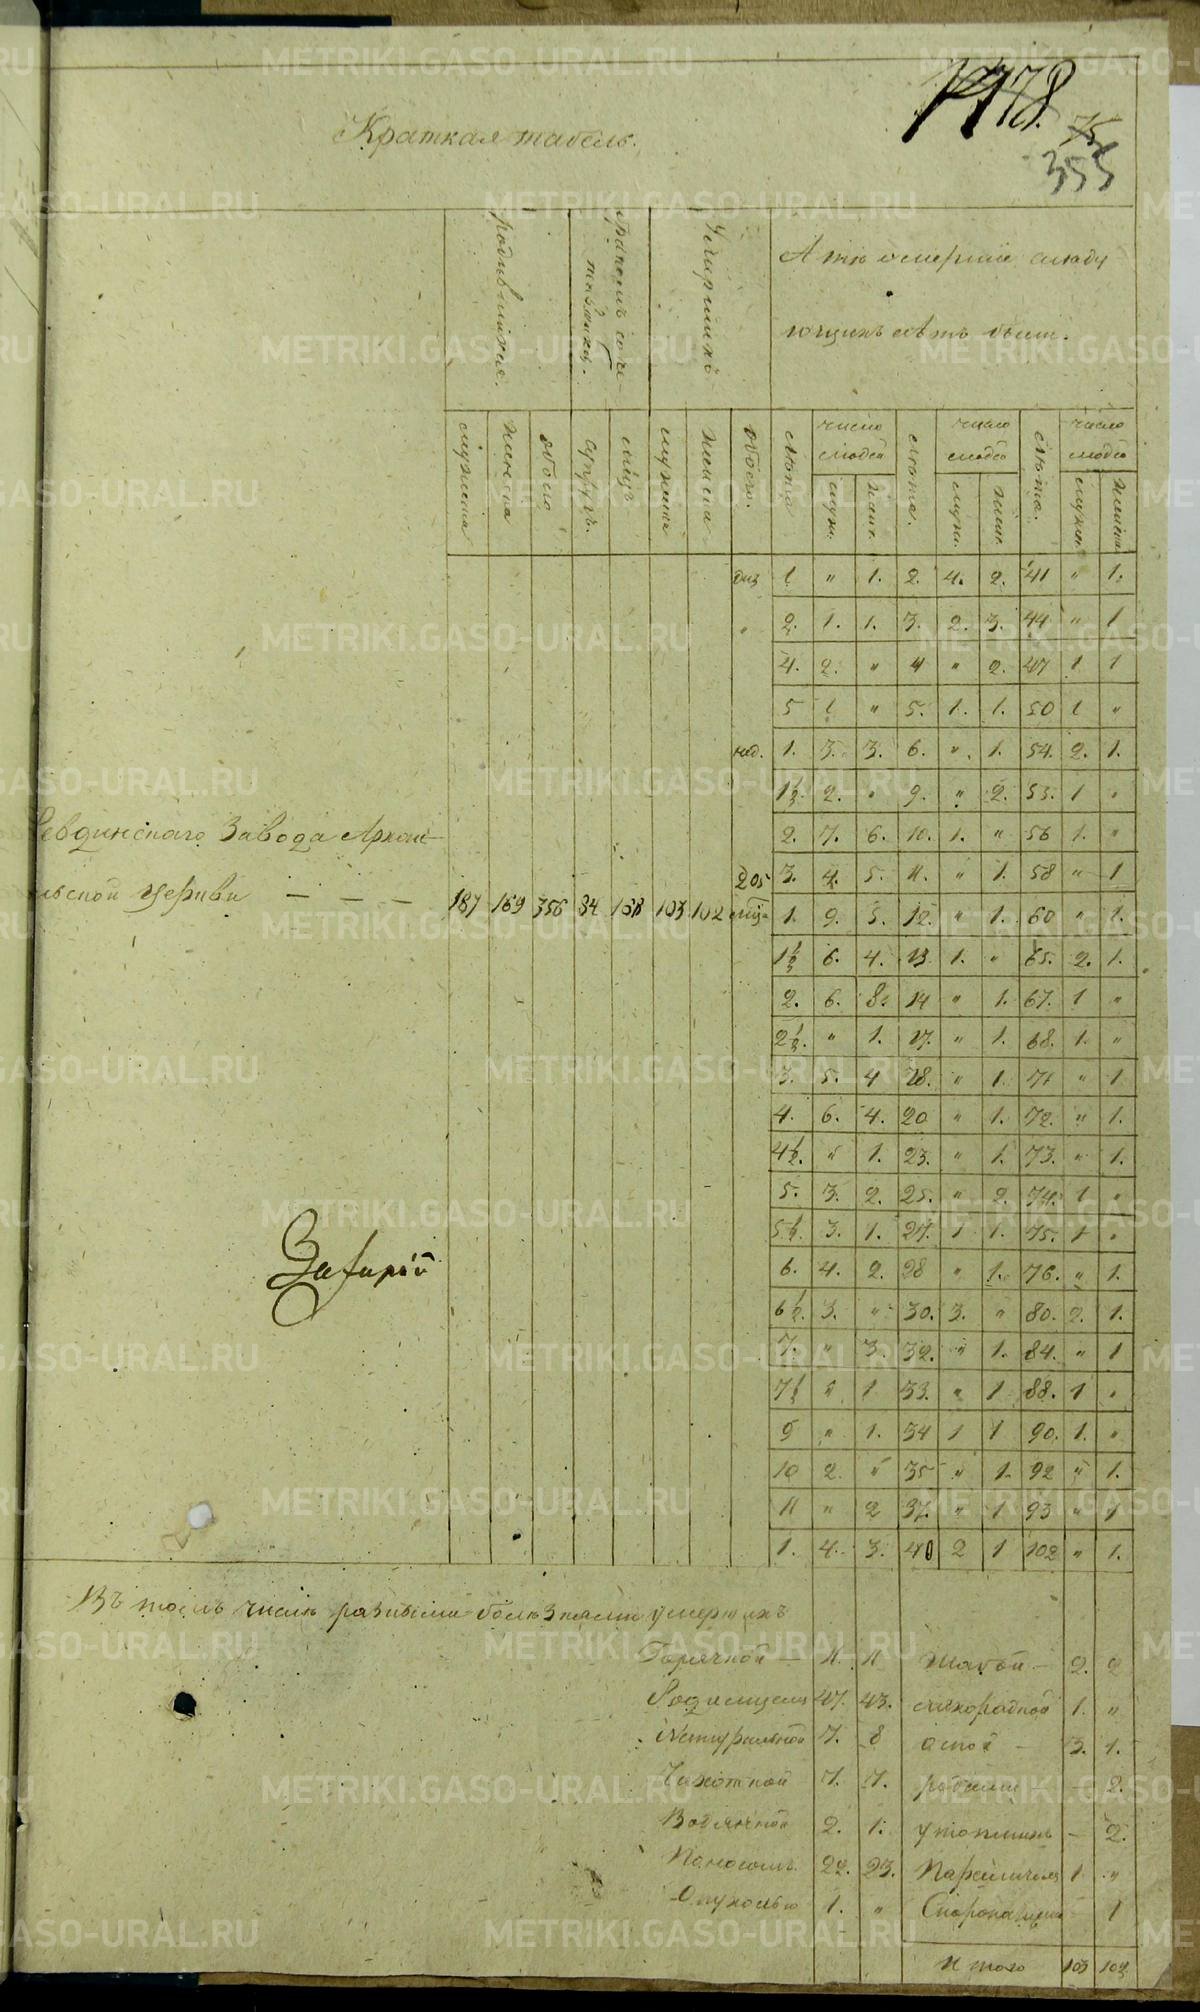 178.
75
355
Краткая табель.
родившихся.
Бракомъ сочетавшихся.
Умершихъ
А тѣ умершіе слѣду
ющихъ лѣтъ были.
мужеска
женска
обоего
супруж.
лицъ
мужеска
женска
обоего.
лѣта
число людей
муж.
жен.
лѣта.
число людей
муж.
жен.
лѣта.
число людей
муж.
женска
дня 1 " 1. 2. 4. 2. 41 " 1.
2. 1. 1. 3. 2. 3. 44 " 1
4. 2. " 4 " 2. 47 1 1
5 1 " 5. 1. 1. 50 1 "
нед. 1. 3. 3. 6. " 1. 54. 2. 1.
1½. 2. " 9. " 2. 53. 1 "
2. 7. 6. 10. 1. " 56 1. "
3. 4. 5. 11. " 1. 58 " 1
Ревдинскаго Завода Архан-
льской Церкви — — — 187 169 356 34 168 103 102 205
мѣся 1. 9. 5. 12. " 1. 60 " 1.
1½ 6. 4. 13 1. " 65. 2. 1.
2. 6. 8. 14 " 1. 67. 1 "
2½. " 1. 17. " 1. 68. 1. "
3. 5. 4 18. " 1 71 " 1
4. 6. 4. 20 " 1. 72. " 1.
4½. " 1. 23. " 1. 73. " 1.
5. 3. 2. 25. " 2. 74. 1 "
5½. 3. 1. 27. 1 1. 75. 1 "
6. 4. 2. 28 " 1. 76. " 1.
6½. 3. " 30. 3. " 80. 2. 1.
7. " 3. 32. " 1. 84. " 1
7½ " 1 33. " 1 88. 1 "
9 " 1. 34 1 1 90. 1. "
10 2. " 35 " 1. 92 " 1.
11 " 2 37. " 1 93 " 1
1. 4. 3. 40 2 1 102 " 1.
Въ томъ числѣ разными болѣзнями умершихъ
Горячкой — 11. 11 Жабой — 2. 2
Родимцемъ 47. 43. лихорадкой 1. "
Натуральной 7. 8 оспой — 3. 1.
Чахоткой 7. 7. родами — — 2.
Водянкой 2. 1. утопшихъ — 2.
Поносомъ 22. 23. Параличемъ 1. "
Опухолью 1. " Скоропостижно — 1
Итого 103 102
METRIKI.GASO-URAL.RU